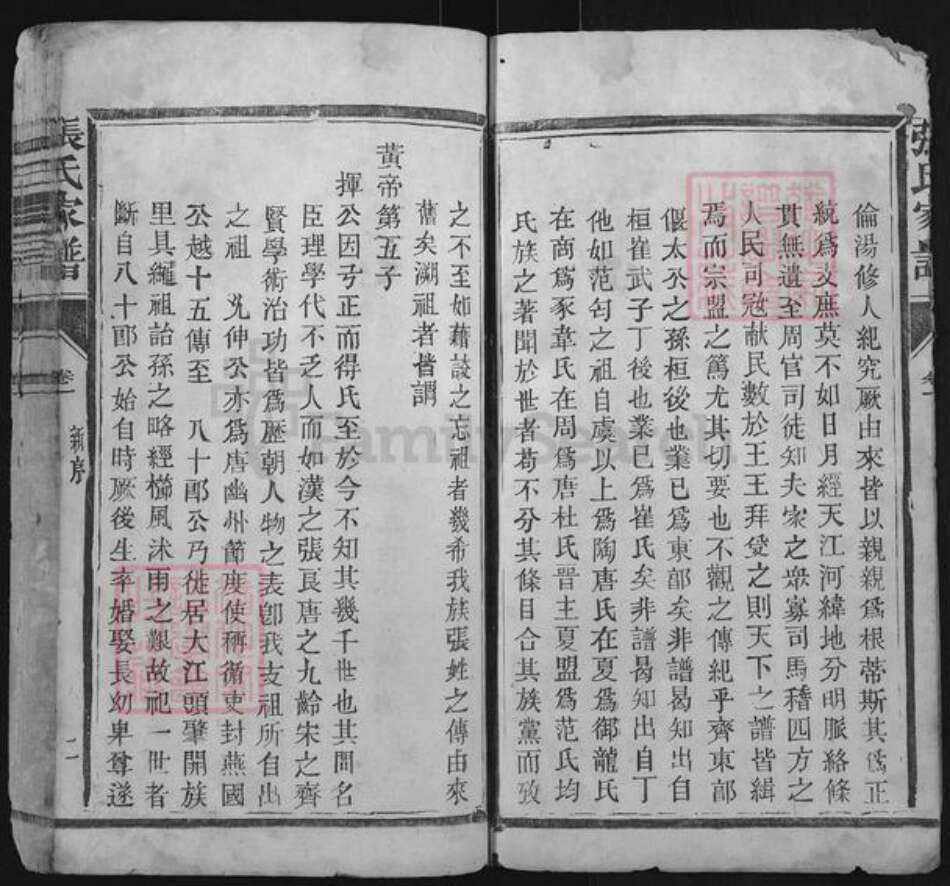 倫湯修人紀究厥由來皆以親親爲根蒂斯其爲正
統爲支庶莫不如日月經天江河緯地分明脈絡條
貫無遺至周官司徒知夫家之衆寡司馬稽四方之
人民司寇献民數於王王拜受之則天下之譜皆緝
焉而宗盟之篤尤其切要也不觀之傳紀乎齊東郭
偃太公之孫桓後也業已爲東郭矣非譜曷知出自
桓崔武子丁後也業已爲崔氏矣非譜曷知出自丁
他如范匄之祖自虞以上爲陶唐氏在夏爲御龍氏
在商爲豕韋氏在周爲唐杜氏晋主夏盟爲范氏均
氏族之著聞於世者苟不分其條目合其族黨而攷
張氏家譜
卷一
之不至如藉談之忘祖者幾希我族張姓之傳由來
舊矣溯祖者皆謂
黃帝第五子
揮公因弓正而得氏至於今不知其幾千世也其間名
臣理學代不乏人而如漢之張良唐之九齡宋之齊
賢學術治功皆爲歷朝人物之表卽我支祖所自出
之祖 允伸公亦爲唐幽州節度使稱循吏封燕國
公越十五傳至 八十郎公乃徙居大江頭肇開族
里具繩祖詒孫之略經櫛風沐雨之艱故祀一世者
斷自八十郎公始自時厥後生卒婚娶長幼卑尊遂
張氏家譜
卷一
新序
二
FamilySearch